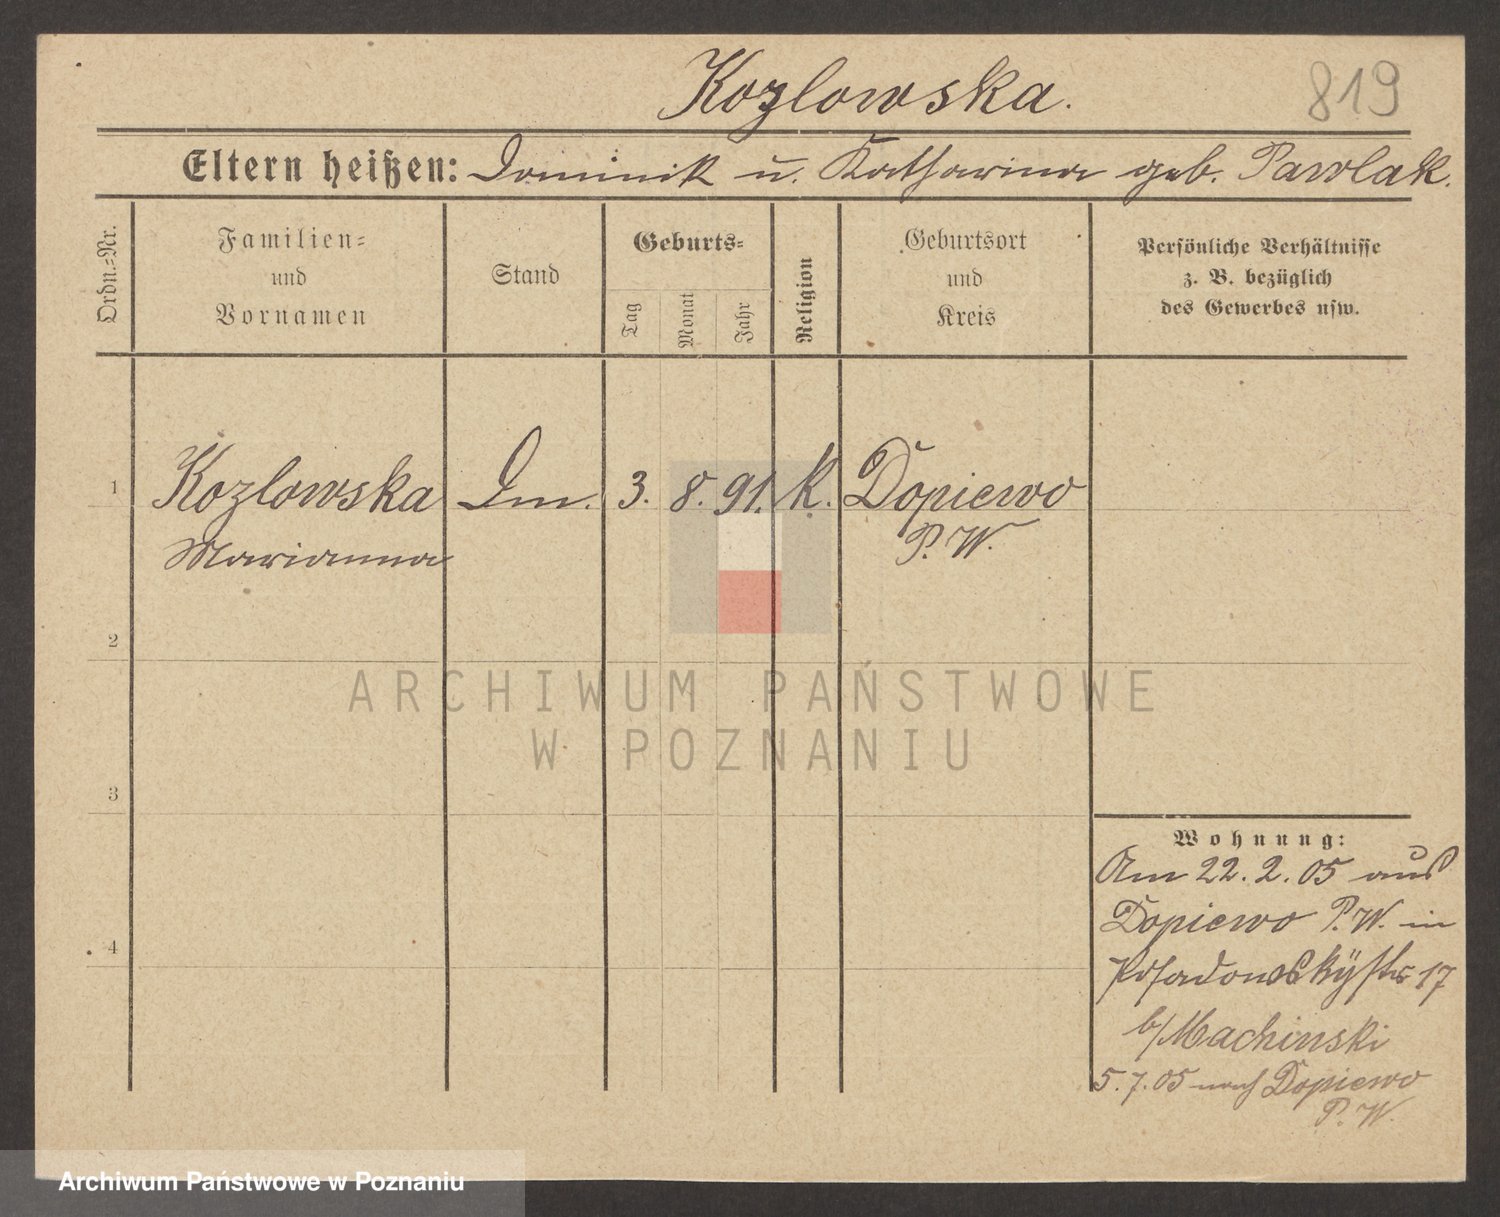 Kozlowska.
819
Eltern heißen: Dominik u. Katharina geb. Pawlak.
Ordn.-Nr.
Familien-
und
Vornamen
Stand
Geburts-
Tag
Monat
Jahr
Religion
Geburtsort
und
Kreis
Persönliche Verhältnisse
z. B. bezüglich
des Gewerbes usw.
1
Kozlowska Dm. 3. 8. 91. K. Dopiewo
Marianna
P. W.
2
3
4
Wohnung:
Am 22. 2. 05 aus
Dopiewo P. W. in
Posadowskystr 17
b/Machinski
5. 7. 05 nach Dopiewo
P. W.
ARCHIWUM PAŃSTWOWE
W POZNANIU
Archiwum Państwowe w Poznaniu